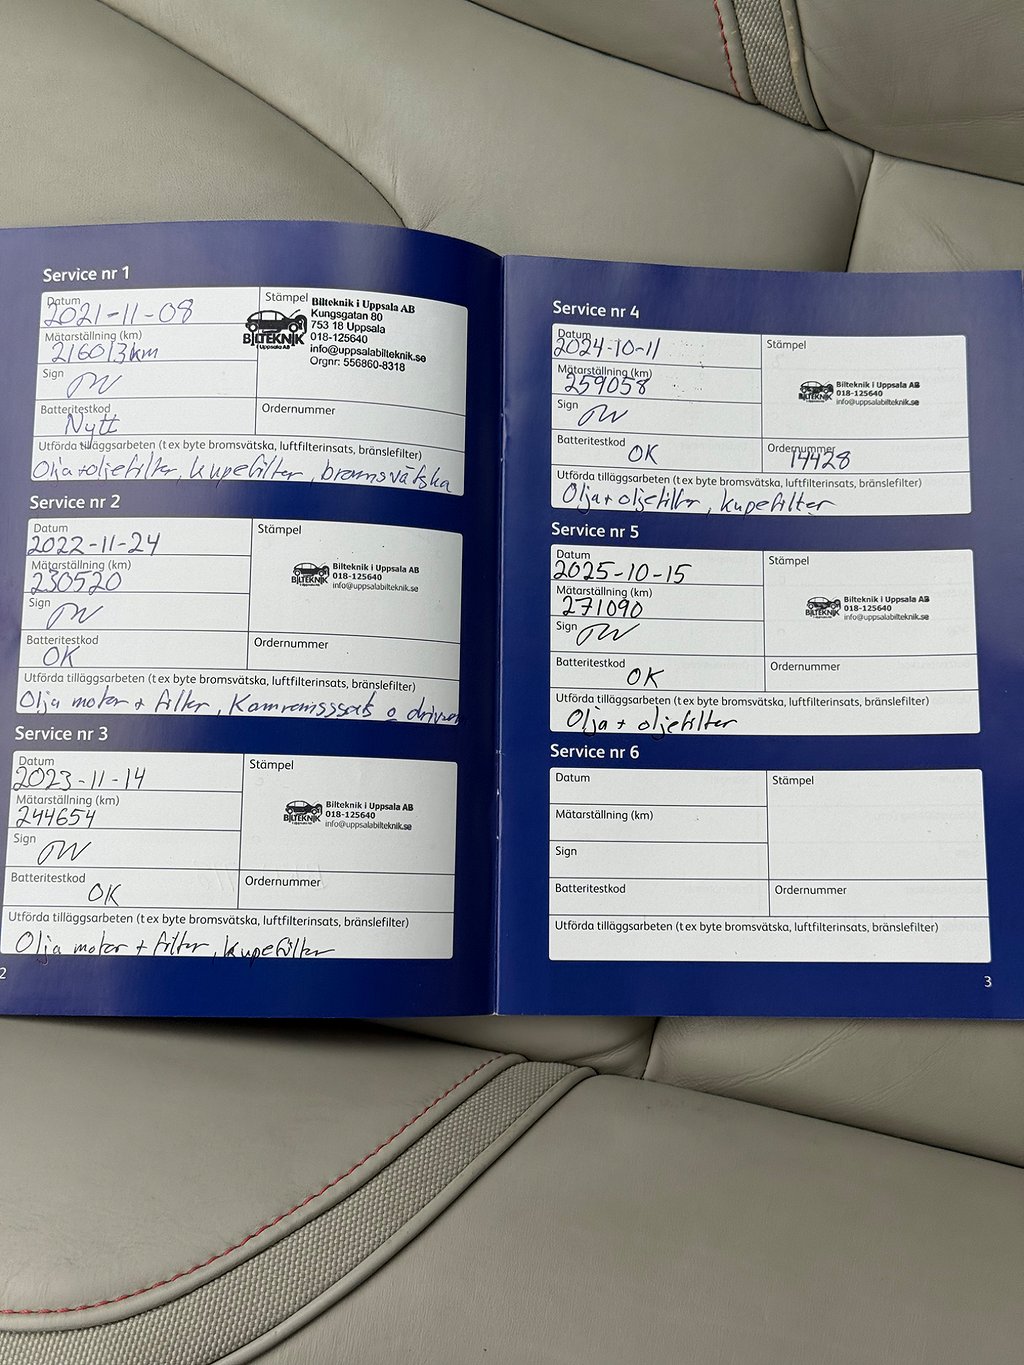 Service nr 1
Datum
2021-11-08
Mätarställning (km)
216013km
Sign
Batteritestkod
Nytt
Stämpel
BILTEKNIK
i Uppsala AB
Bilteknik i Uppsala AB
Kungsgatan 80
753 18 Uppsala
018-125640
info@uppsalabilteknik.se
Orgnr: 556860-8318
Ordernummer
Utförda tilläggsarbeten (t ex byte bromsvätska, luftfilterinsats, bränslefilter)
Olja+oljefilter, kupefilter, bromsvätska
Service nr 2
Datum
2022-11-24
Mätarställning (km)
230520
Sign
Batteritestkod
OK
Stämpel
BILTEKNIK
Bilteknik i Uppsala AB
018-125640
info@uppsalabilteknik.se
Ordernummer
Utförda tilläggsarbeten (t ex byte bromsvätska, luftfilterinsats, bränslefilter)
Olja motor + filter, Kamremssats o
Service nr 3
Datum
2023-11-14
Mätarställning (km)
244654
Sign
Batteritestkod
OK
Stämpel
BILTEKNIK
Bilteknik i Uppsala AB
018-125640
info@uppsalabilteknik.se
Ordernummer
Utförda tilläggsarbeten (t ex byte bromsvätska, luftfilterinsats, bränslefilter)
Olja motor + filter, kupefilter
2
Service nr 4
Datum
2024-10-11
Mätarställning (km)
259058
Sign
Batteritestkod
OK
Stämpel
BILTEKNIK
Bilteknik i Uppsala AB
018-125640
info@uppsalabilteknik.se
Ordernummer
14428
Utförda tilläggsarbeten (t ex byte bromsvätska, luftfilterinsats, bränslefilter)
Olja+oljefilter, kupefilter
Service nr 5
Datum
2025-10-15
Mätarställning (km)
271090
Sign
Batteritestkod
OK
Stämpel
BILTEKNIK
Bilteknik i Uppsala AB
018-125640
info@uppsalabilteknik.se
Ordernummer
Utförda tilläggsarbeten (t ex byte bromsvätska, luftfilterinsats, bränslefilter)
Olja + oljefilter
Service nr 6
Datum
Mätarställning (km)
Sign
Batteritestkod
Stämpel
Ordernummer
Utförda tilläggsarbeten (t ex byte bromsvätska, luftfilterinsats, bränslefilter)
3